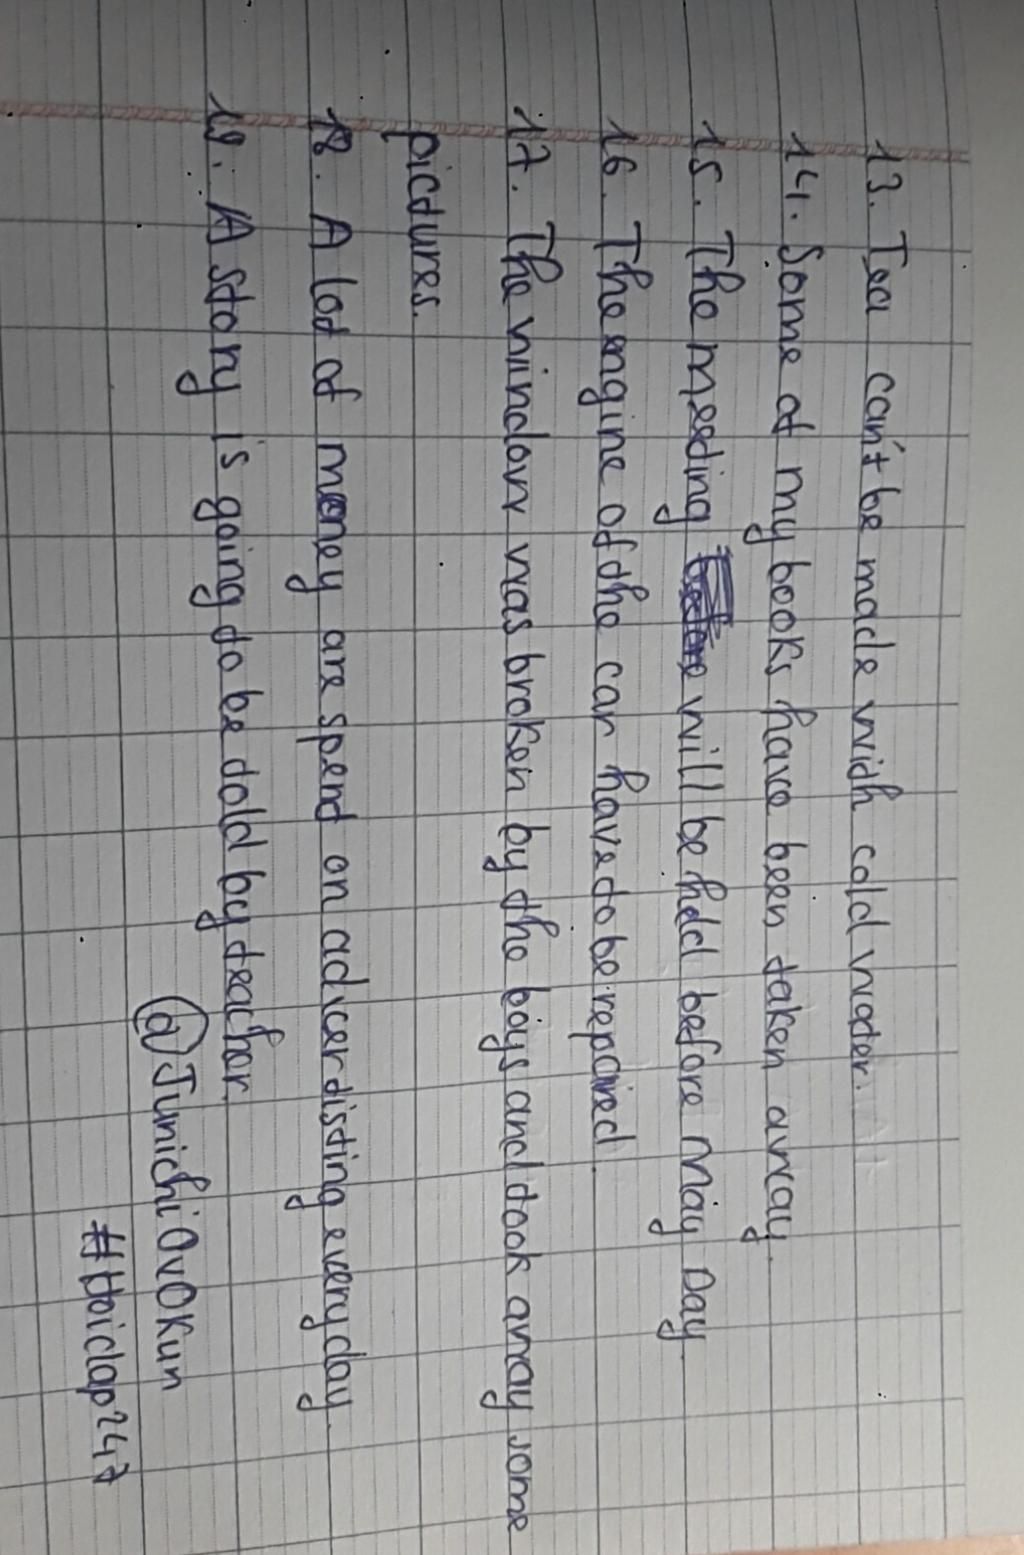 13. Tea can't be made with cold water.
14. Some of my books have been taken away.
15. The meeting will be held before May Day
16. The engine of the car have to be repaired
17. The window was broken by the boys and took away some
pictures.
18. A lot of money are spent on advertisting everyday.
19. A story is going to be told by teacher.
@JunichiOvOkun
#Hoidap247